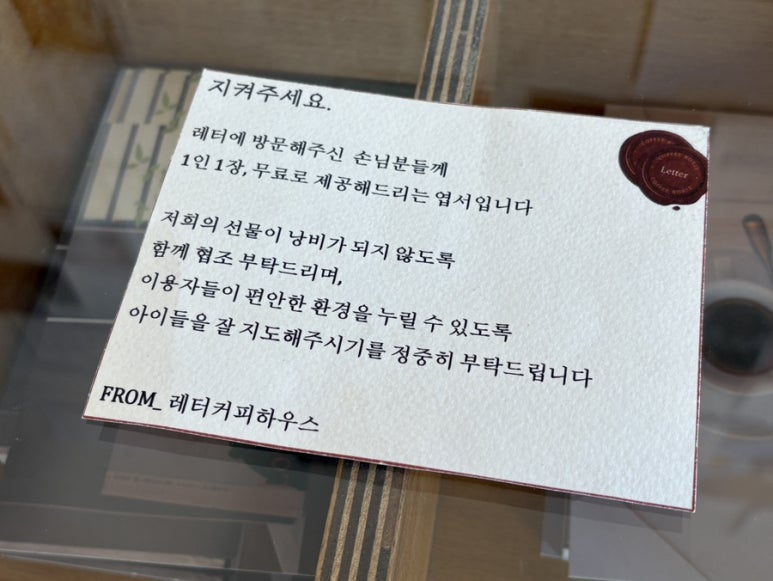 지켜주세요.
레터에 방문해주신 손님분들께
1인 1장, 무료로 제공해드리는 엽서입니다
저희의 선물이 낭비가 되지 않도록
함께 협조 부탁드리며,
이용자들이 편안한 환경을 누릴 수 있도록
아이들을 잘 지도해주시기를 정중히 부탁드립니다
FROM_ 레터커피하우스
Letter